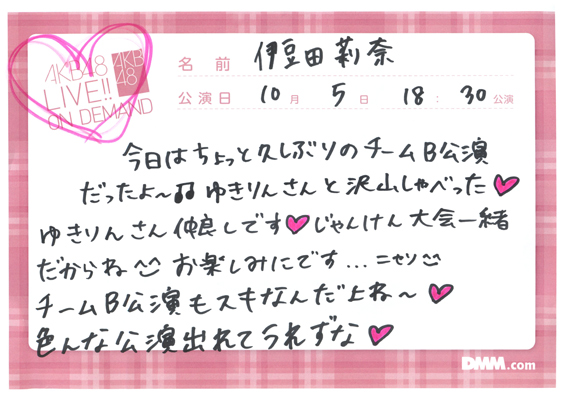 AKB48
LIVE!!
ON DEMAND
AKB
48
名前 伊豆田莉奈
公演日 10月 5日 18:30公演
今日はちょっと久しぶりのチームB公演
だったよ〜♫♫ ゆきりんさんと沢山しゃべった♥
ゆきりんさん仲良しです♥じゃんけん大会一緒
だからね お楽しみにです...ニヤソ
チームB公演もスキなんだよね〜♥
色んな公演出れてうれずな♥
DMM.com